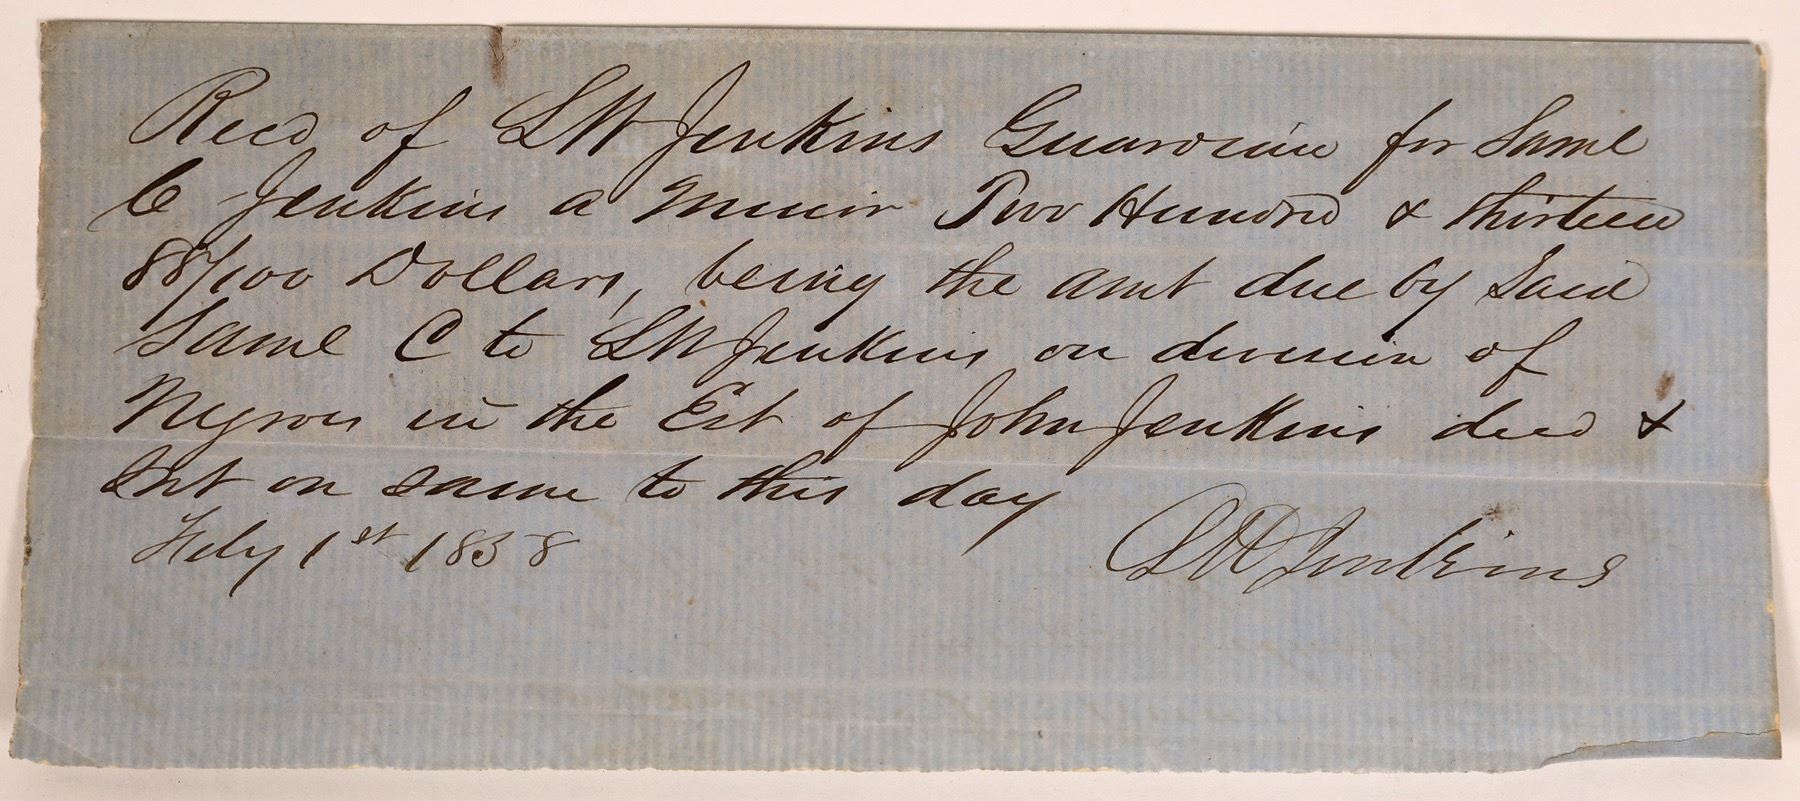 Recd of LW Jenkins Guardian for Saml
C Jenkins a Minor Two Hundrd & thirteen
88/100 Dollars, being the amt due by Said
Saml C to LW Jenkins on division of
Negroes in the Est of John Jenkins decd &
Int on same to this day
Feby 1st 1858
LW Jenkins